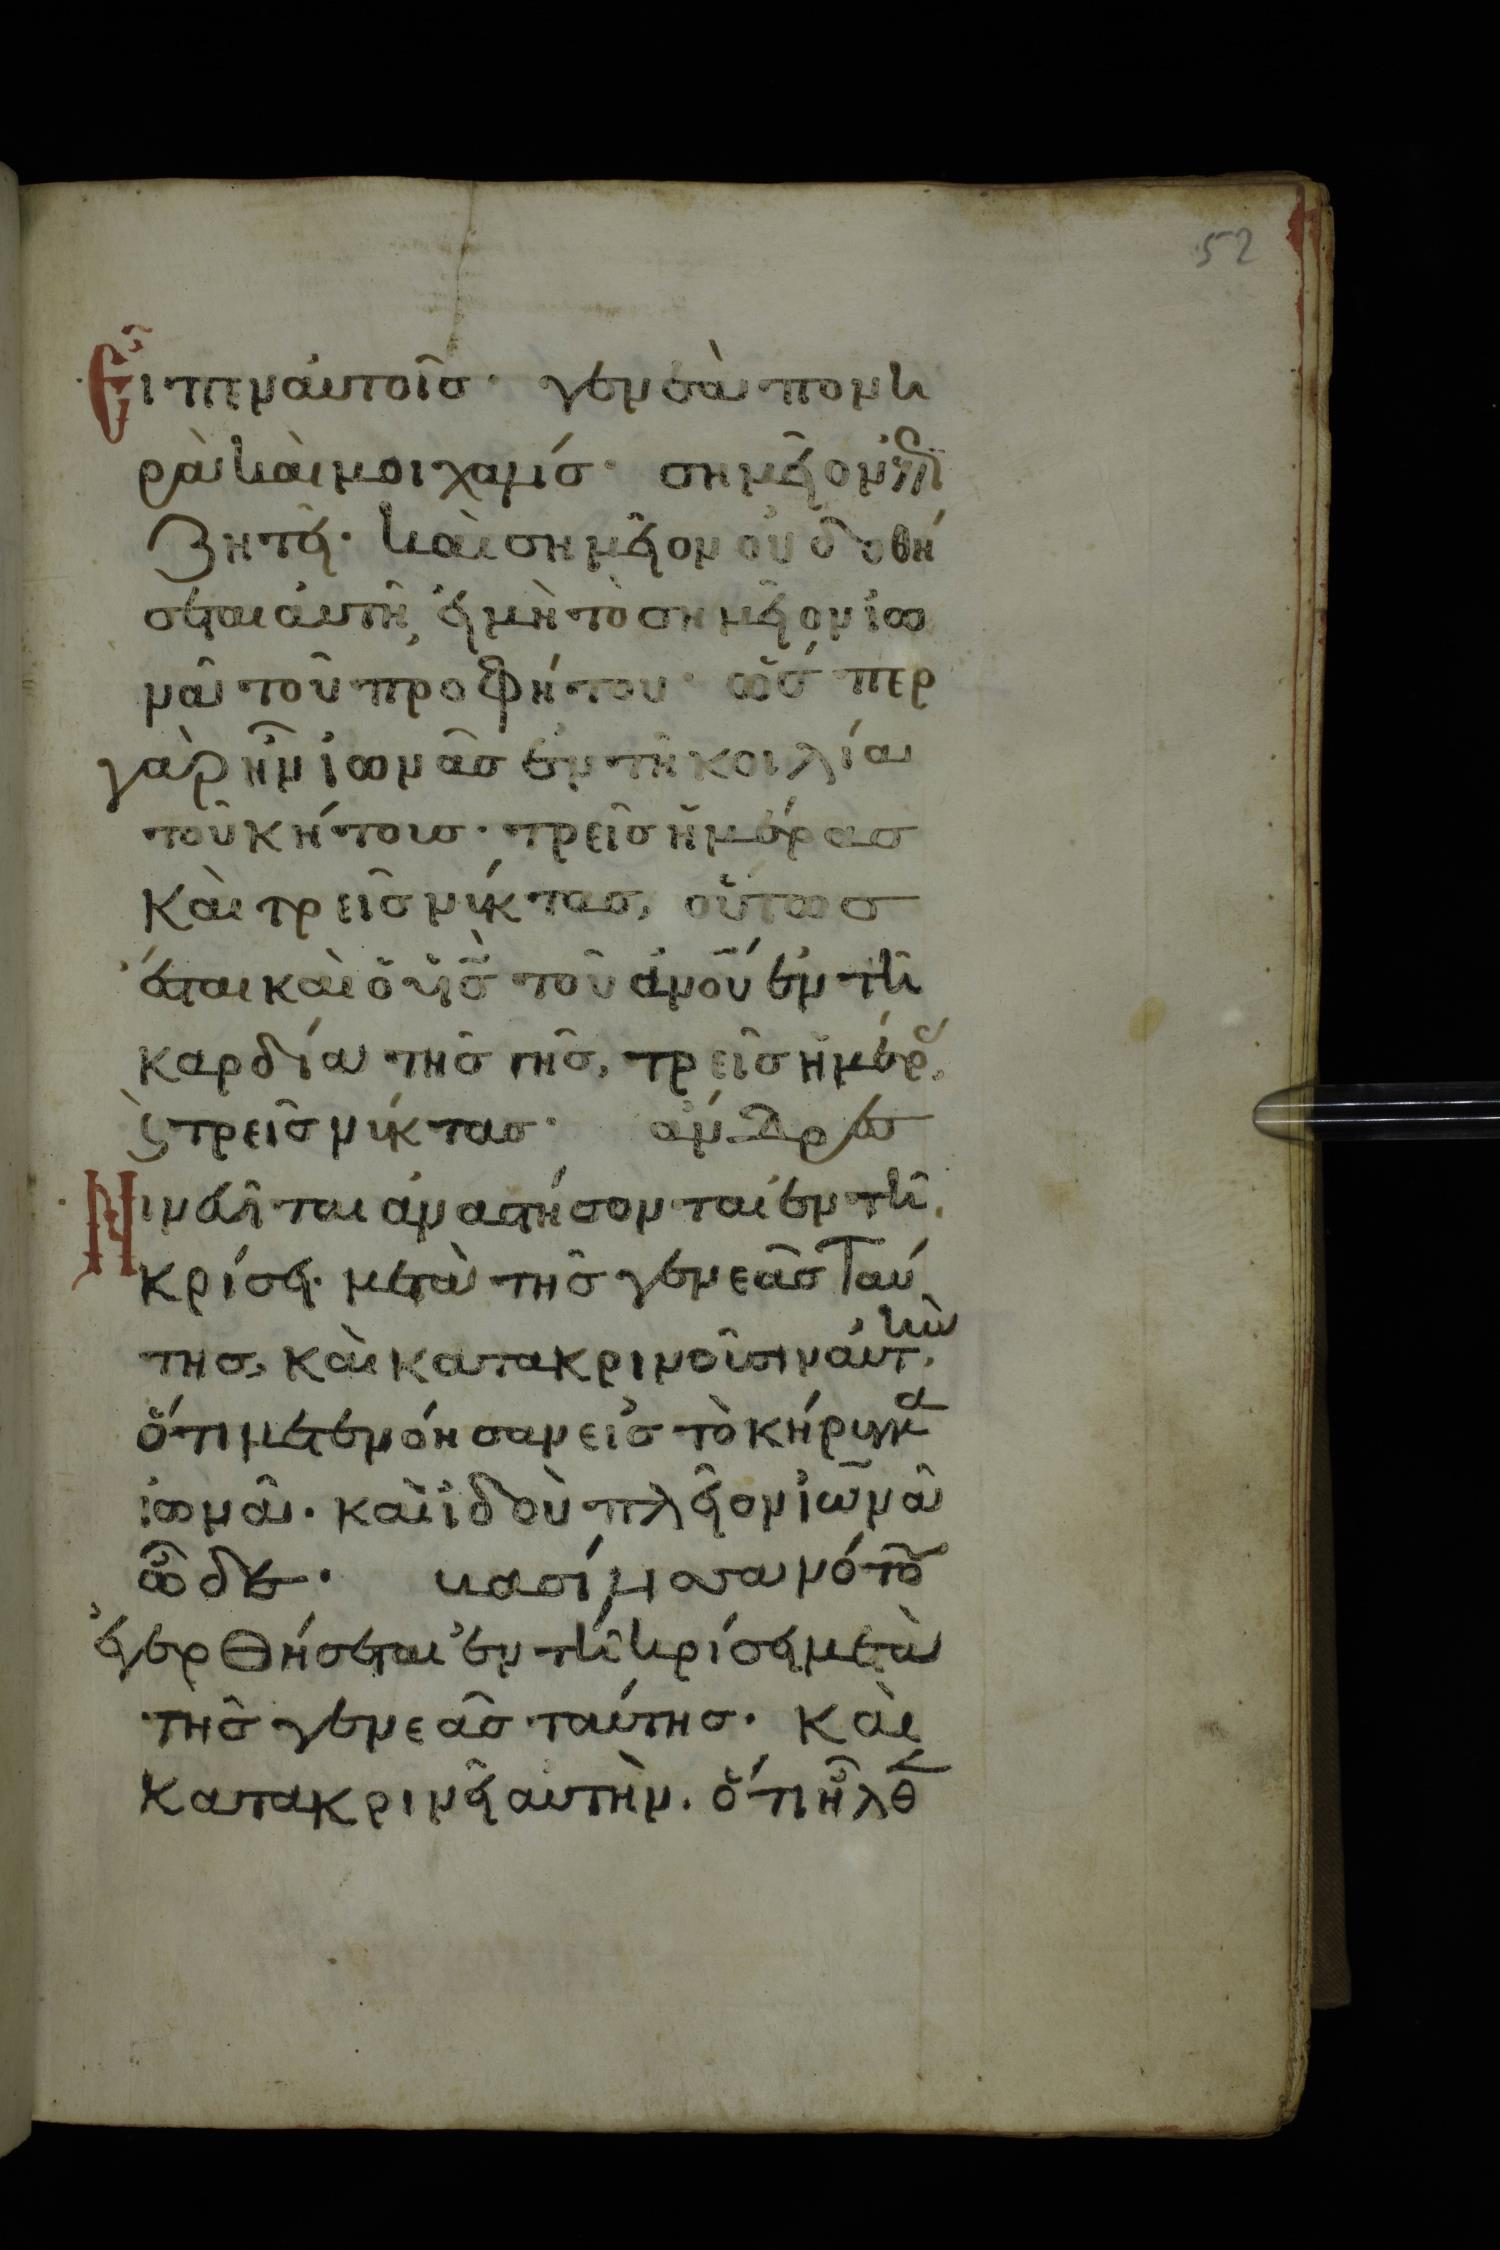 52
Εἶπεν αὐτοῖσ· γενεὰ πονη
ρὰ καὶ μοιχαλίσ· σημεῖον ἐπι
ζητεῖ· καὶ σημεῖον οὐ δοθή
σεται αὐτῆ, εἰ μὴ τὸ σημεῖον ἰω
νᾶ τοῦ προφήτου· ὥσπερ
γὰρ ἦν ἰωνᾶσ ἐν τῆ κοιλία
τοῦ κήτουσ· τρεῖσ ἡμέρασ
καὶ τρεῖσ νύκτασ, οὕτωσ
ἔσται καὶ ὁ υἱὸσ τοῦ ἀνου ἐν τῆ
καρδία τῆσ γῆσ, τρεῖσ ἡμέρ,
ϛ τρεῖσ νύκτασ· ἄνδρεσ
Νινευῖται ἀναστήσονται ἐν τῆ
κρίσει· μετὰ τῆσ γενεᾶσ ταύ
τησ, καὶ κατακρινοῦσιν αὐτὴν,
ὅτι μετενόησαν εἰσ τὸ κήρυγμα
ἰωνᾶ· καὶ ἰδοὺ πλεῖον ἰωνᾶ
ὧδε· βασίλισσα νότου
ἐγερθήσεται ἐν τῆ κρίσει μετὰ
τῆσ γενεᾶσ ταύτησ· καὶ
κατακρινεῖ αὐτὴν· ὅτι ἦλθεν